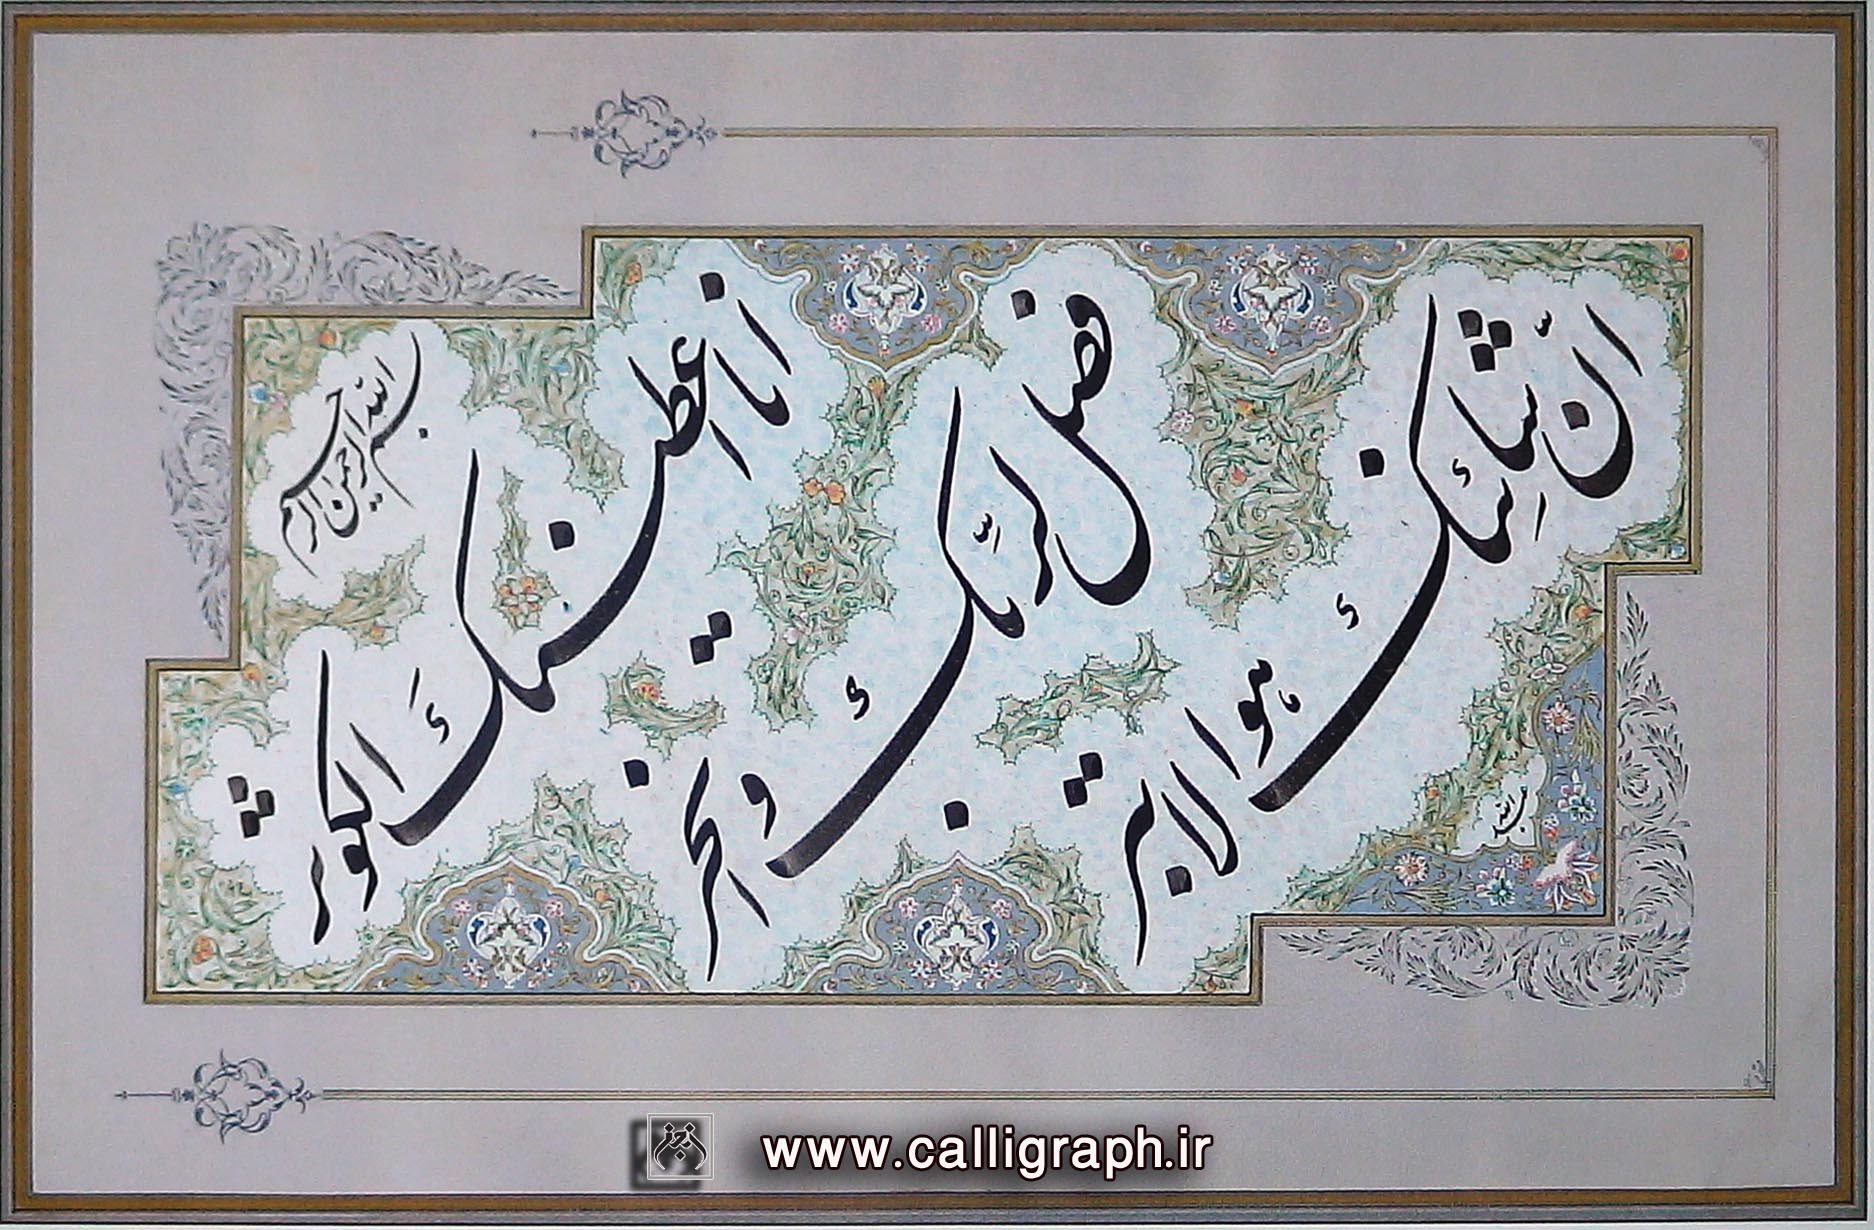 بسم الله الرحمن الرحیم
انا اعطینک الکوثر
فصل لربک وانحر
ان شانئک هوالابتر
www.calligraph.ir